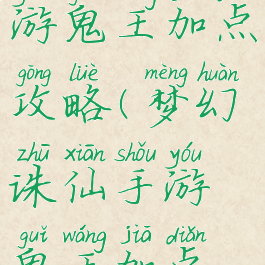 游鬼王加点
gōng lüè mèng huàn
攻略(梦幻
zhū xiān shǒu yóu
诛仙手游
guǐ wáng jiā diǎn
鬼王加点